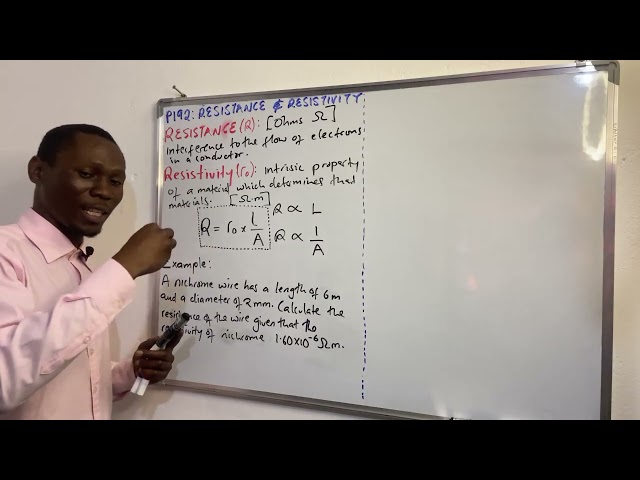 P192: RESISTANCE & RESISTIVITY
RESISTANCE (R): [Ohms Ω]
Interference to the flow of electrons
in a conductor.
Resistivity (ro): Intrisic property
of a material which determines that
materials. [Ωm]
R = ro × L/A
R ∝ L
R ∝ 1/A
Example:
A nichrome wire has a length of 6m
and a diameter of 2mm. Calculate the
resistance of the wire given that the
resistivity of nichrome 1.60×10⁻⁶Ωm.